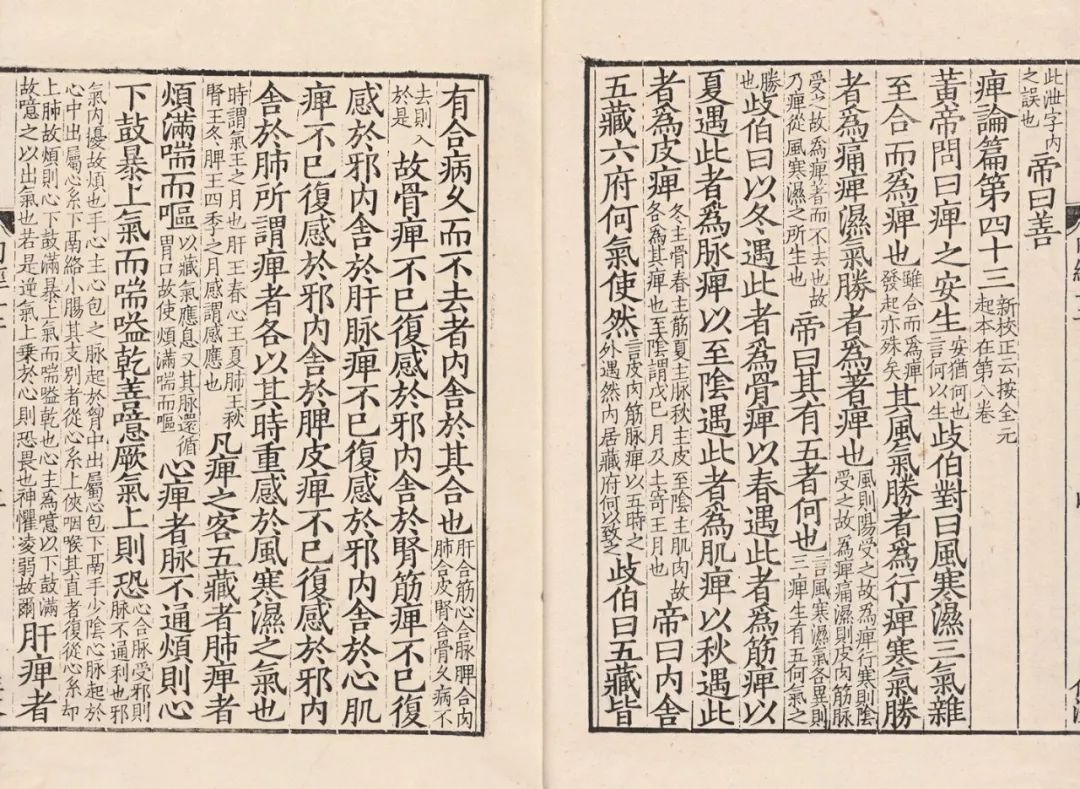 此泄字内之誤也帝曰善
痺論篇第四十三新校正云按全元起本在第八卷
黄帝問曰痺之安生安猶何也言何以生歧伯對曰風寒濕三氣雜
至合而爲痺也雖合而爲痺發起亦殊矣其風氣勝者爲行痺寒氣勝
者爲痛痺濕氣勝者爲著痺也風則陽受之故爲痺行寒則陰受之故爲痺痛濕則皮肉筋脉
受之故爲痺著而不去也故乃痺從風寒濕之所生也帝曰其有五者何也言風寒濕氣各異則三痺生有五何氣之
勝也歧伯曰以冬遇此者爲骨痺以春遇此者爲筋痺以
夏遇此者爲脉痺以至陰遇此者爲肌痺以秋遇此
者爲皮痺冬主骨春主筋夏主脉秋主皮至陰主肌肉故各爲其痺也至陰謂戊巳月及土寄王月也帝曰内舍
五藏六府何氣使然言皮肉筋脉痺以五時之外遇然内居藏府何以致之歧伯曰五藏皆
有合病久而不去者内舍於其合也肝合筋心合脉脾合肉肺合皮腎合骨久病不
去則入於是故骨痺不已復感於邪内舍於腎筋痺不已復
感於邪内舍於肝脉痺不已復感於邪内舍於心肌
痺不已復感於邪内舍於脾皮痺不已復感於邪内
舍於肺所謂痺者各以其時重感於風寒濕之氣也
時謂氣王之月也肝王春心王夏肺王秋腎王冬脾王四季之月感謂感應也凡痺之客五藏者肺痺者
煩滿喘而嘔以藏氣應息又其脉還循胃口故使煩滿喘而嘔心痺者脉不通煩則心
下鼓暴上氣而喘嗌乾善噫厥氣上則恐心合脉受邪則脉不通利也邪
氣内擾故煩也手心主心包之脉起於胷中出屬心包下鬲手少陰心脉起於心中出屬心系下鬲絡小腸其支別者從心系上俠咽喉其直者復從心系却
上肺故煩則心下鼓滿暴上氣而喘嗌乾也心主爲噫以下鼓滿故噫之以出氣也若是逆氣上乗於心則恐畏也神懼凌弱故爾肝痺者